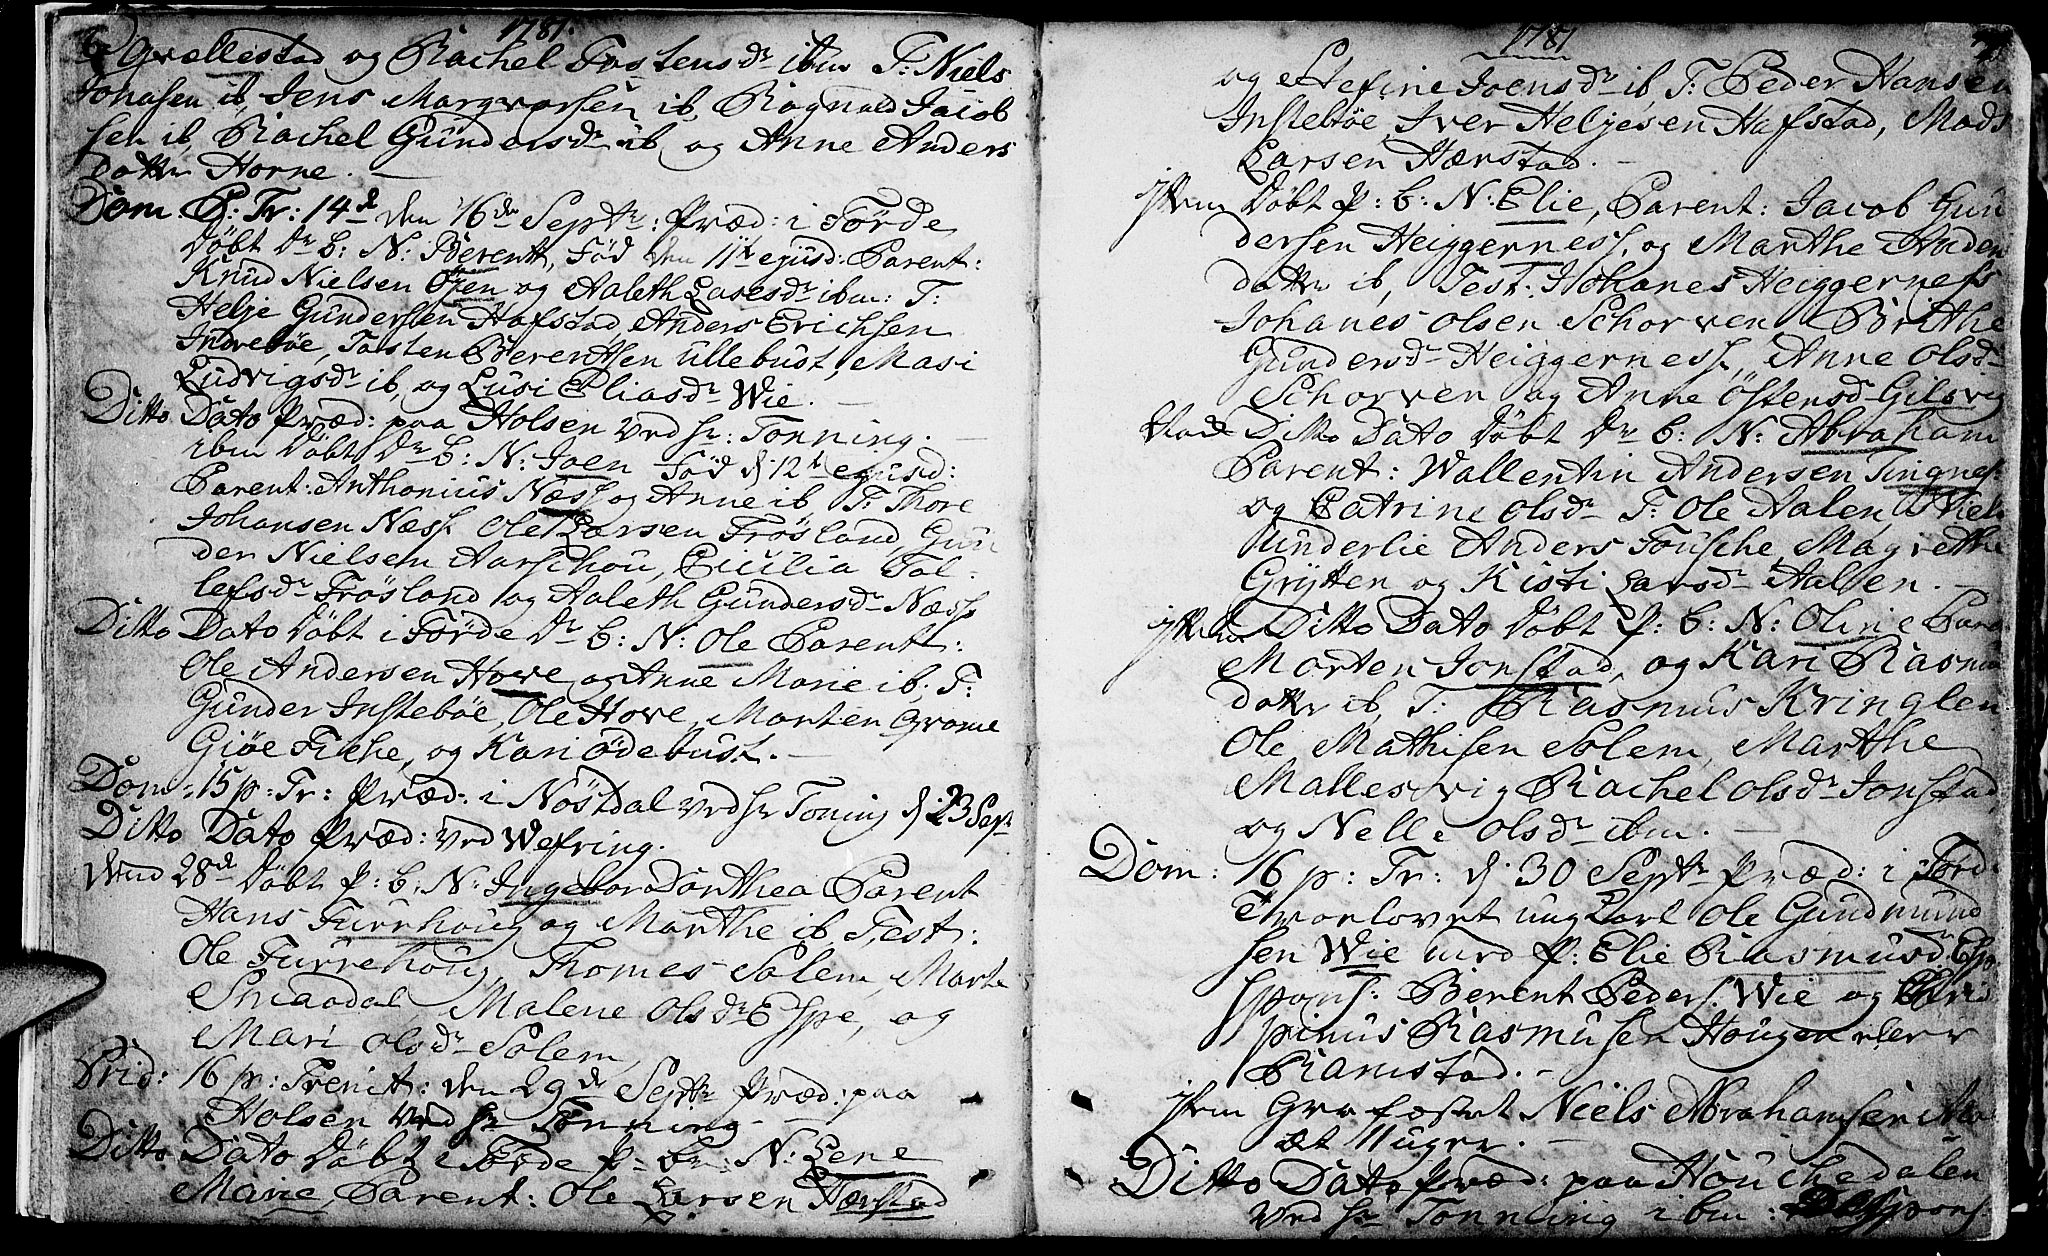 1781.
Gvællestad og Rachel Tostensdr ibm T: Niels
Johasen ib, Jens Margvorsen ib, Rognald Jacob
sen ib Rachel Gundersdr ib og Anne Anders
datter Horne.
Dom. P: Tr: 14d den 16de Septr: Præd: i Förde
Döbt Dr: B: N: Berent, Föd den 11te ejusd: Parent:
Knud Nielsen Öjen og Aaleth Lasesdr ibm: T:
Helje Gundersen Hafstad, Anders Erichsen
Indreböe, Tosten Berentsen Ullebust, Masi
Ludvigsdr ib, og Lusi Eliasdr Wie.
Ditto Dato Præd: paa Holsen ved Hr: Tonning.
ibm Döbt Dr B: N: Joen Föd d: 12te ejusd:
Parent: Anthonius Næss og Anne ib, T: Thore
Johansen Næss Ole Larsen Frösland, Gun
der Nielsen Aarschou, Cicilia Tol-
lefsdr Frösland og Aaleth Gundersdr Næss
Ditto Dato Döbt i Förde Dr B: N: Ole Parent:
Ole Andersen Hove og Anne Marie ib. T:
Gunder Insteböe, Ole Hove, Morten Grome
Giöe Fiche, og Kari Ödebust.
Dom: 15 p: Tr: Præd: i Nöstdal ved Hr Toning d: 23 Sept
Ditto Dato Præd: ved Wefring.
Dend 28de Döbt P: B: N: Ingebor Dorthea Parent
Hans Furrhoug og Marthe ib, Test:
Ole Furrehoug, Thomes Solem, Marte
Smaadal, Malene Olsdr Espe, og
Mari Olsdr Solem,
Prid: 16 p: Trenit: den 29de Septr Præd: paa
Holsen ved Hr Tonning
Ditto Dato Döbt i Förde P: B: N: Lene
Marie, Parent: Ole Larsen Hærstad
1781
og Stefine Joensdr ib, T: Peder Hansen
Insteböe, Iver Heljesen Hafstad, Mads
Larsen Hærstad.
item Döbt P: B: N: Elie, Parent: Jacob Gun
dersen Heiggerness, og Marthe Anders
datter ib, Test: Johanes Heiggerness
Johanes Olsen Schorven Brithe
Gundersdr Heiggerness, Anne Olsdr
Schorven og Anne Östensd Gilsvig
Ditto Dato Döbt Dr B: N: Abraham
Parent: Wallentin Andersen Tingnes
og Catrine Olsdr T: Ole Aalen, Niels
Underlie Anders Fousche, Magrethe
Grÿtten og Kisti Larsdr Aalen.
item Ditto Dato Döbt P: B: N: Oline Pare
Morten Jonstad, og Kari Rasmus
datter ib, T: Rasmus Kringlen
Ole Mathisen Solem, Marthe
Mallesvig Rachel Olsdr Jonstad
og Nelle Olsdr ibm.
Dom: 16 p: Tr: d: 30 Septr Præd: i Förd:
Trorlovet ung Carl Ole Gudmund
sen Wie med P: Elie Rasmusdr Espe
Spons: Berent Peders. Wie og Chris
pinus Rasmusen Hougen eller
Ramstad.
item Grafæstet Niels Abrahamsen
æt 11 uger.
Ditto Dato Præd: paa Houchedalen
ved Hr Tonning ibm: